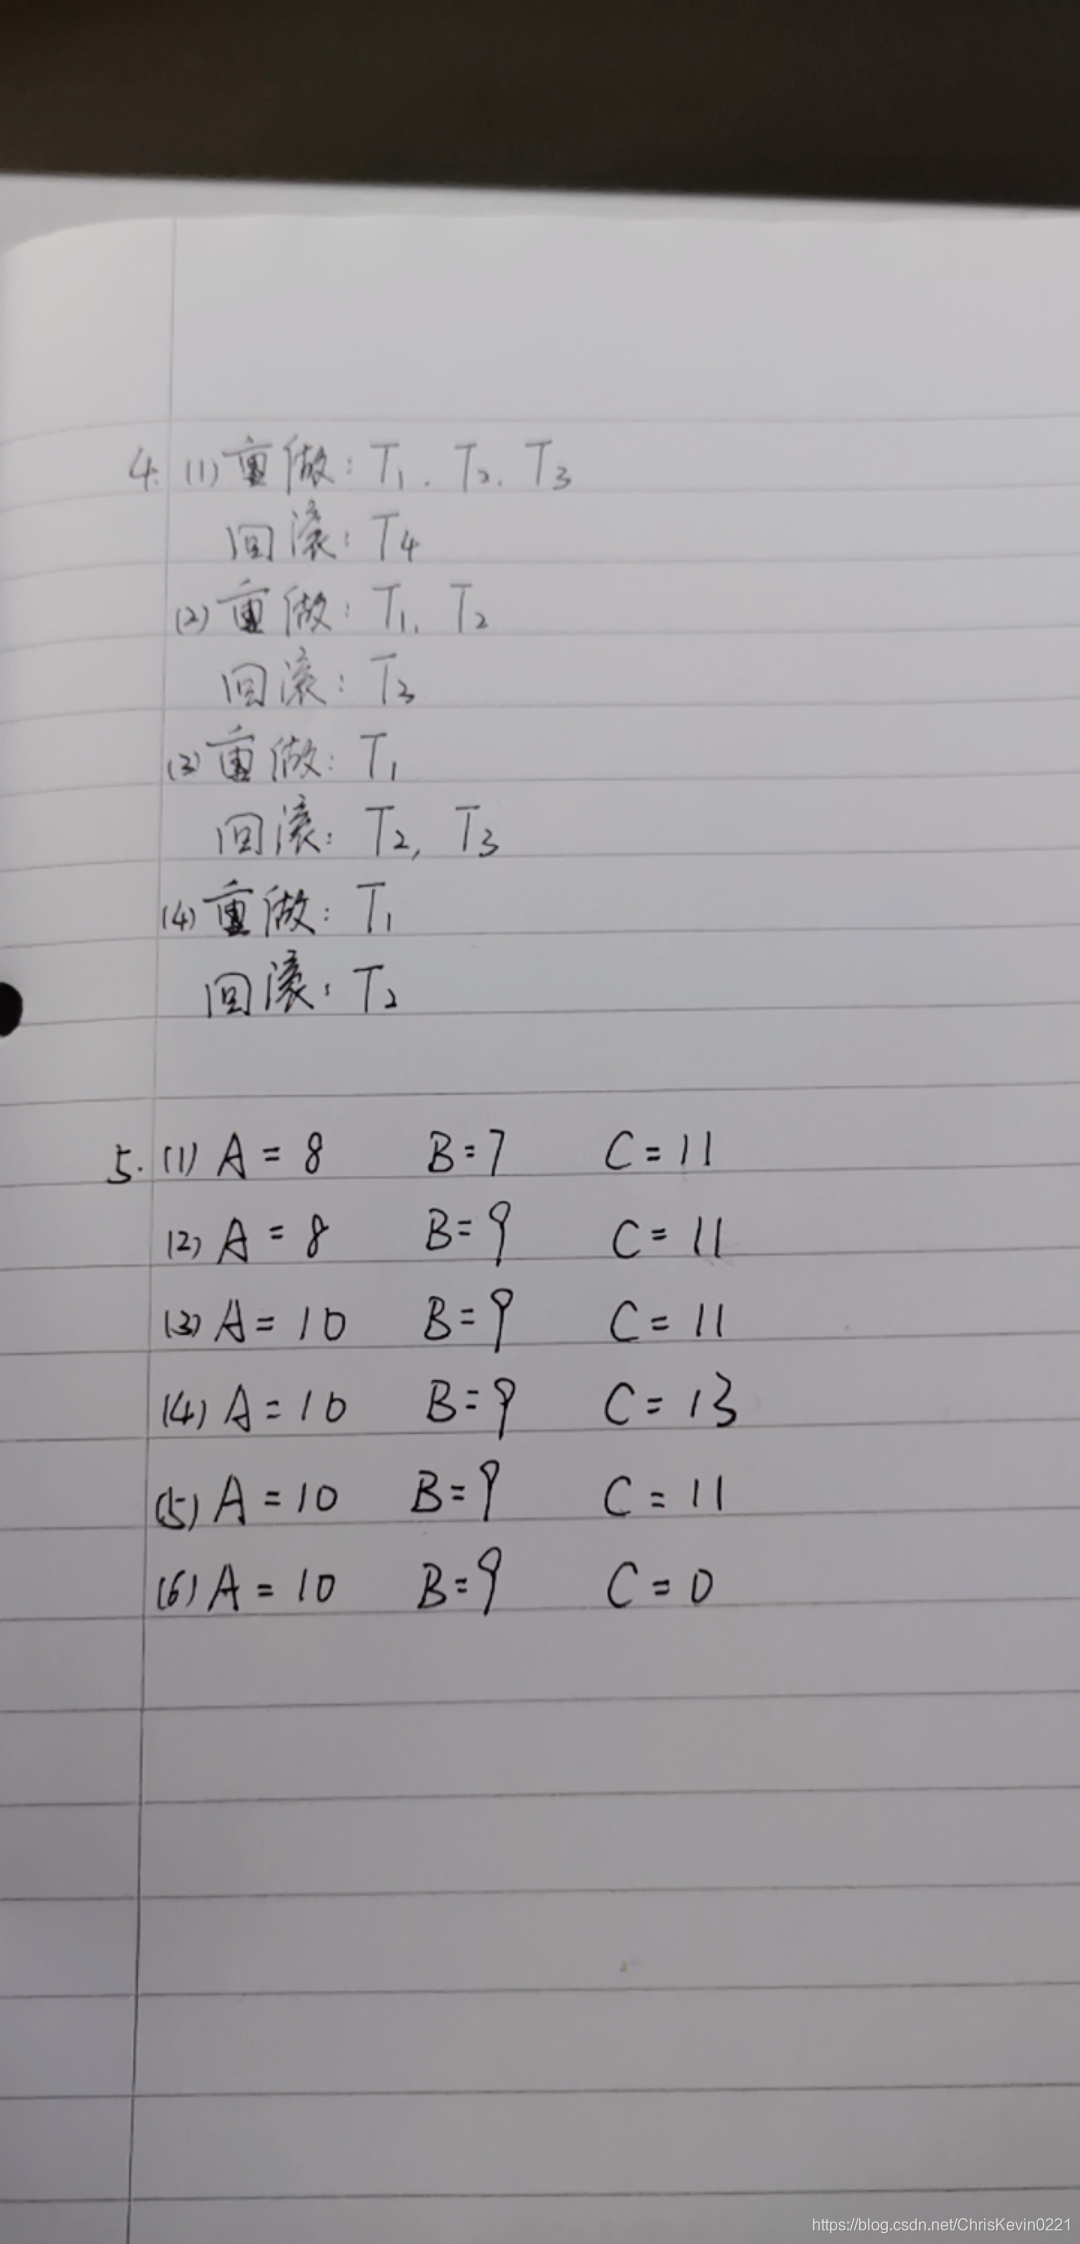 4. (1) 重做: T1. T2. T3
回滚: T4
(2) 重做: T1, T2
回滚: T3
(3) 重做: T1
回滚: T2, T3
(4) 重做: T1
回滚: T2
5. (1) A = 8 B = 7 C = 11
(2) A = 8 B = 9 C = 11
(3) A = 10 B = 9 C = 11
(4) A = 10 B = 9 C = 13
(5) A = 10 B = 9 C = 11
(6) A = 10 B = 9 C = 0
https://blog.csdn.net/ChrisKevin0221